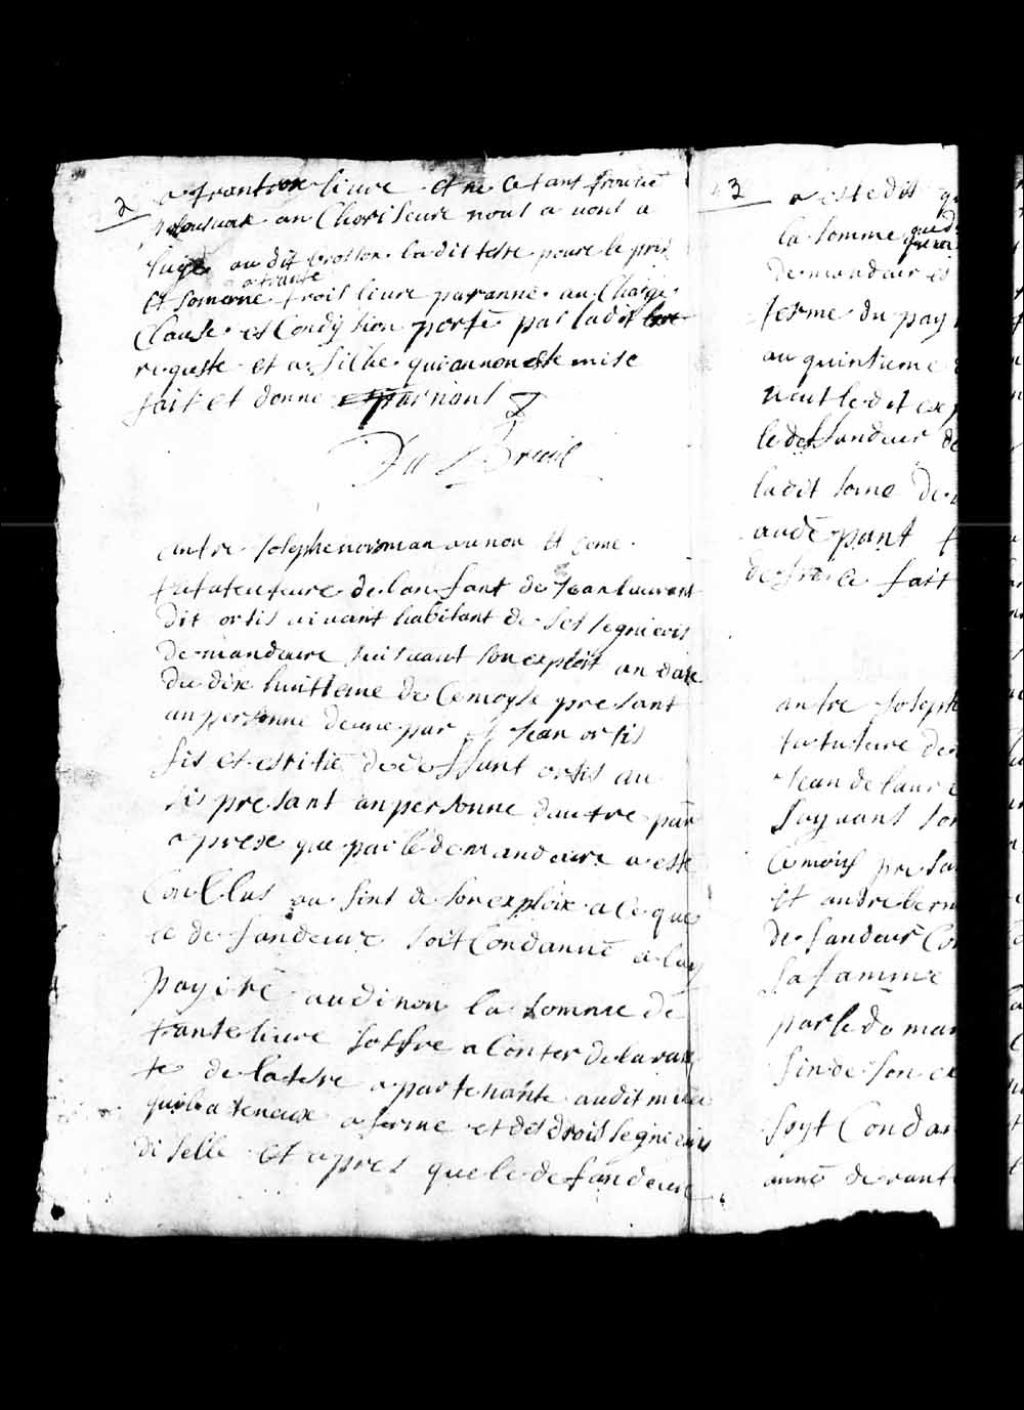 2
a trantroix livre et ne cetant trouve
aucun an Cheriseure nous avons a
juge au dit brosson ladit terre poure le pris
a trante
Et somme trois livre par anne au Charge
Clause et Condysion porte par ladit
requeste et afiche qui an non este mise
fait et donne par nous
Du Breuil
antre Josephe norman au non Et come
tutateure de lanfant de Jean laurant
dit ortis vivant habitant de ses segnieris
demandeure suivant son exploit an date
du dix huittieme de Cemoys presant
anpersonne dune par Et Jean ortis
fis et eritie de defunt ortis au
sis presant anpersonne dautre par
aprese que par le demandeure a este
Conllus au fins de son exploix a ce que
le defandeure soit Condanne a luy
payere audi non la somme de
trante livre soffre a Conter de la ran
te de latere apartenante audit mineu
quil a teneux a ferme et des drois segnieuris
diselle Et apres que le defandeure
3
a este dit
la somme
demandeur et
terme du pay
au quinsieme
veut le dit exp
le defandeur de
ladit some de
au depant
de france fait
antre Joseph
tututeure de
Jean de laure
suyvant son
Cemois presa
et andre bern
defandeur Co
sa famme
par le deman
fin de son ex
soyt Condan
anne devant